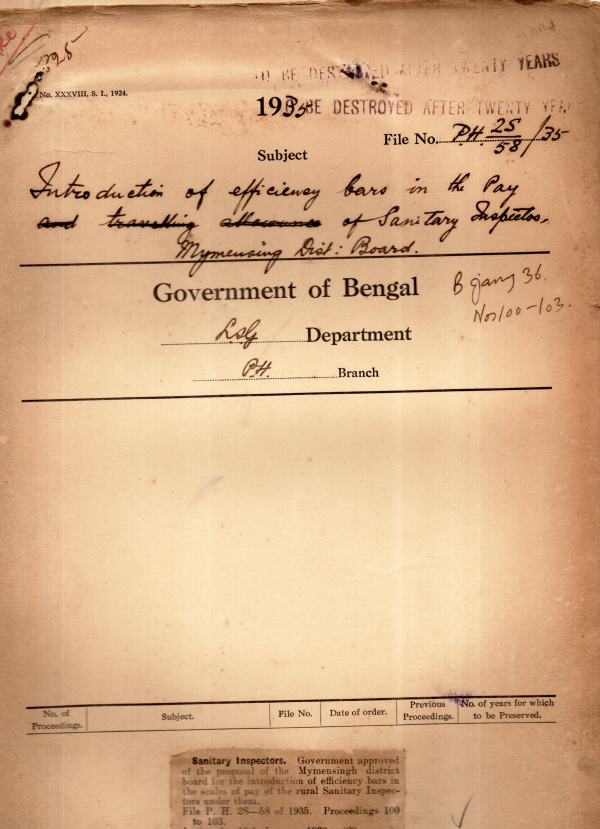 No. XXXVIII, S. I., 1924.
TO BE DESTROYED AFTER TWENTY YEARS
1935 BE DESTROYED AFTER TWENTY YEA
File No. P.H. 2S/58 /35
Subject
Introduction of efficiency bars in the Pay
and travelling allowance of Sanitary Inspectors,
Mymensing Dist: Board.
Government of Bengal
B Jany 36.
Nos 100-103.
LSG Department
P.H. Branch
No. of Proceedings. Subject. File No. Date of order. Previous Proceedings. No. of years for which to be Preserved.
Sanitary Inspectors. Government approved
of the proposal of the Mymensingh district
board for the introduction of efficiency bars in
the scales of pay of the rural Sanitary Inspec-
tors under them.
File P. H. 2S—58 of 1935. Proceedings 100
to 103.